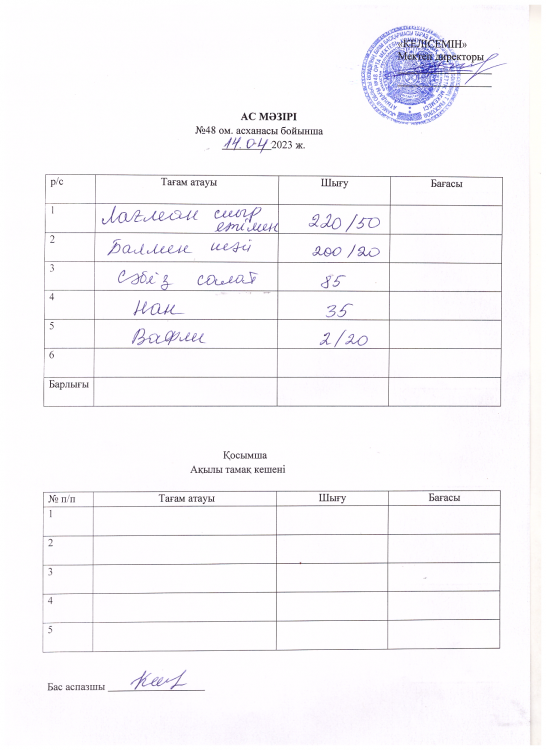 «КЕЛІСЕМІН»
Мектеп директоры
АС МӘЗІРІ
№48 ом. асханасы бойынша
14.04 2023 ж.
р/с Тағам атауы Шығу Бағасы
1 Лағман сиыр етімен 220/50
2 Балмен шәй 200/20
3 Сәбіз салат 85
4 Нан 35
5 Вафли 2/20
6
Барлығы
Қосымша
Ақылы тамақ кешені
№ п/п Тағам атауы Шығу Бағасы
1
2
3
4
5
Бас аспазшы